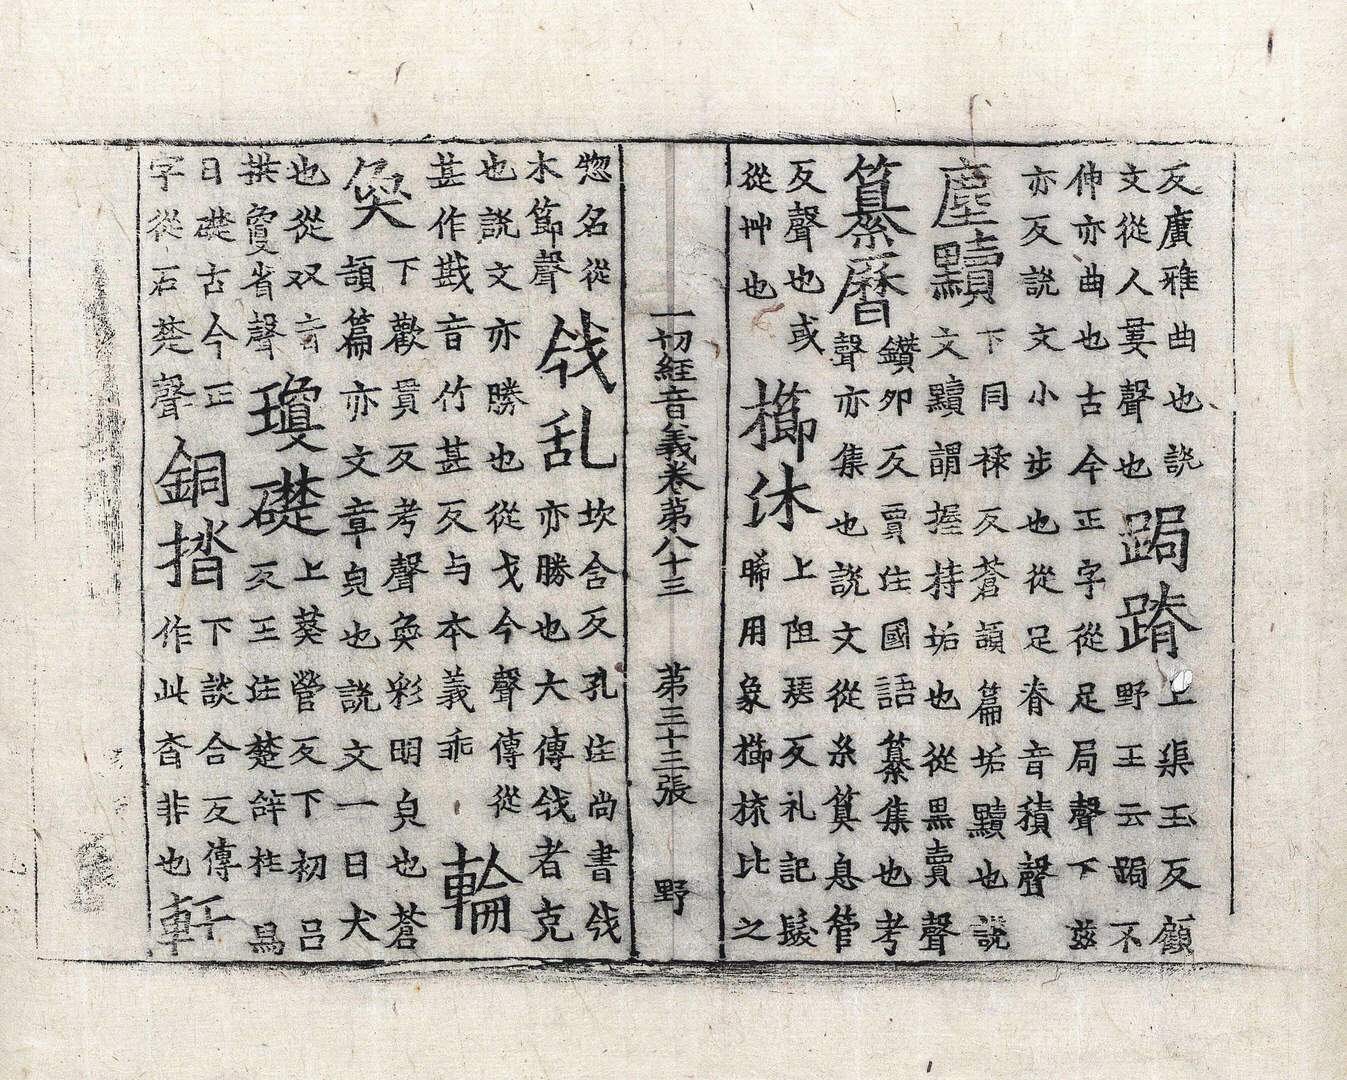 反廣雅曲也説
文從人婁聲也
跼蹐
上渠玉反顧
野王云跼不
伸亦曲也古今正字從足局聲下茲
亦反説文小步也從足脊音積聲
塵黷
下同祿反蒼頡篇垢黷也説
文黷謂握持垢也從黒賣聲
纂曆
鑽夘反賈注國語纂集也考
聲亦集也説文從糸算息管
反聲也或
從艸也
櫛沐
上阻瑟反礼記髮
晞用象櫛梳比之
一切經音義卷第八十三 第三十三張 野
惣名從
木節聲
𢦟乱
坎含反孔注尚書𢦟
亦勝也大傳𢦟者克
也説文亦勝也從戈今聲傳從
甚作戡音竹甚反与本義乖
輪
奐
下歡貫反考聲奐彩明皃也蒼
頡篇亦文章皃也説文一曰犬
也從双言
拱敻省聲
瓊礎
上葵營反下初呂
反王注楚辞柱舄
曰礎古今正
字從石楚聲
銅
下談合反傳
作此沓非也
軒